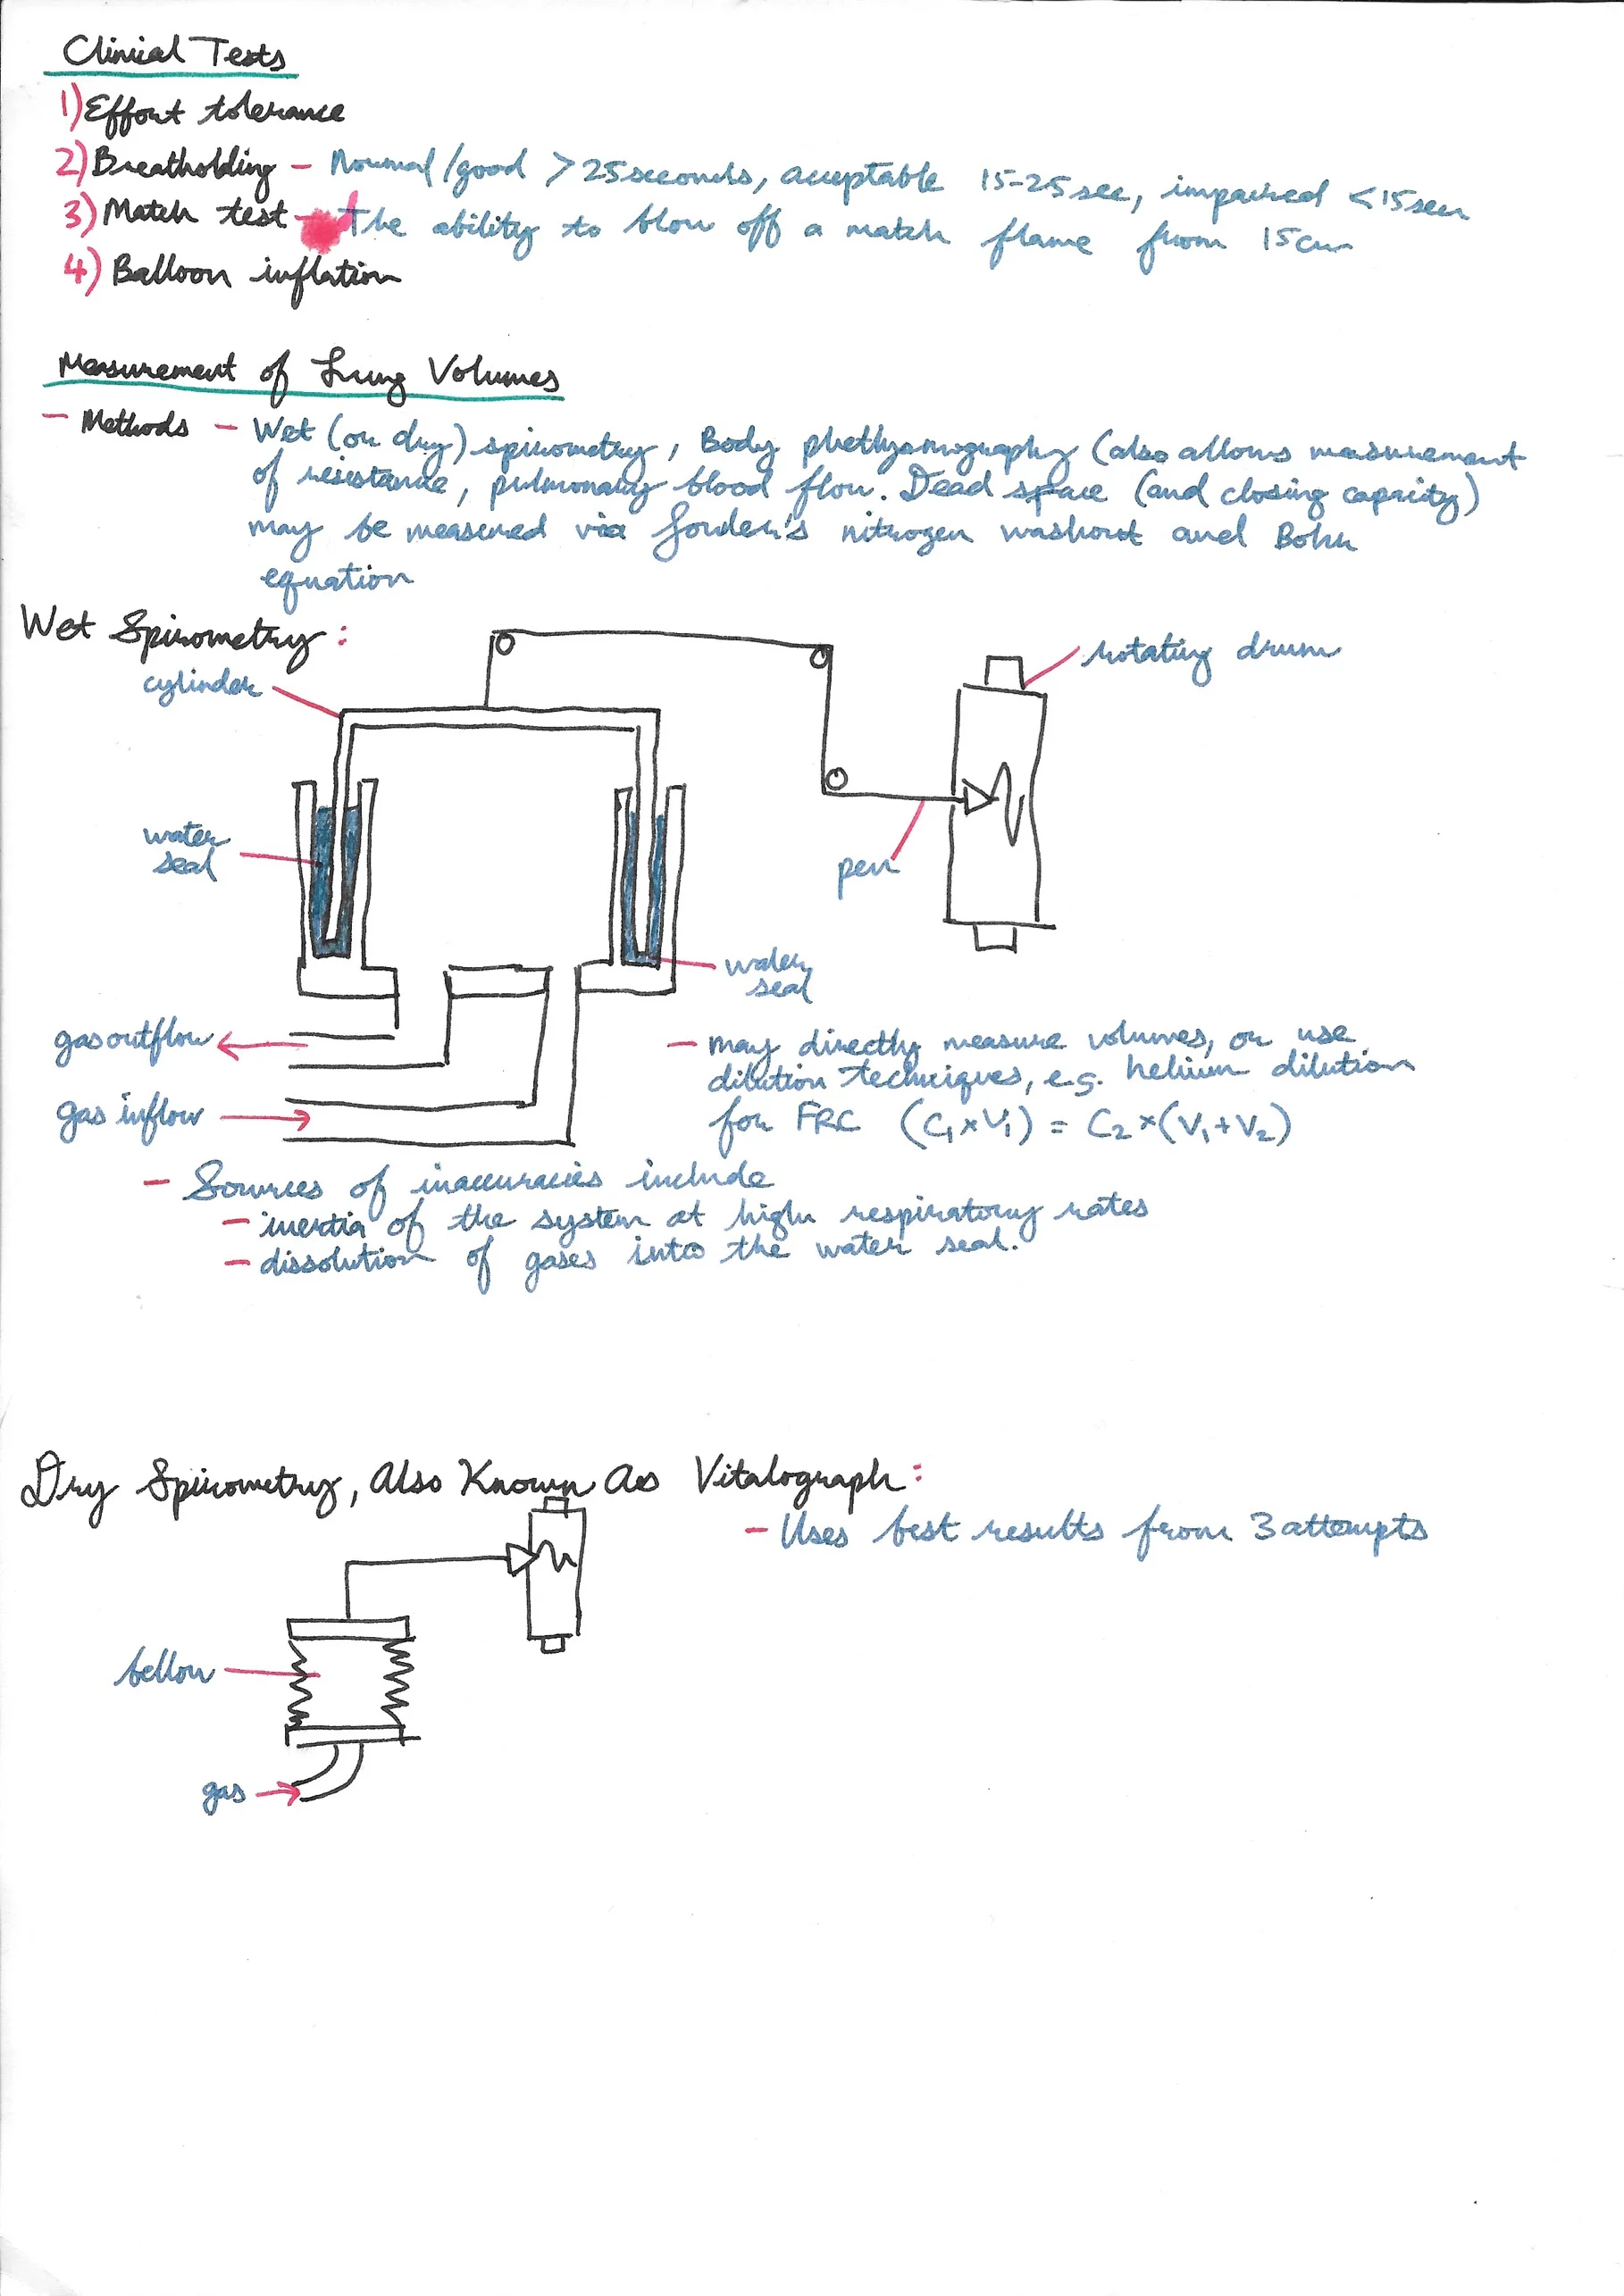 Clinical Tests
1) Effort tolerance
2) Breatholding - Normal/good >25seconds, acceptable 15-25sec, impaired <15sec
3) Match test - The ability to blow off a match flame from 15cm
4) Balloon inflation
Measurement of Lung Volumes
- Methods - Wet (or dry) spirometry, Body phethysmography (also allows measurement
of resistance, pulmonary blood flow. Dead space (and closing capacity)
may be measured via Fowler's nitrogen washout and Bohr
equation
Wet Spirometry:
rotating drum
cylinder
water
seal
pen
water
seal
gas outflow
- may directly measure volumes, or use
dilution techniques, e.g. helium dilution
gas inflow
for FRC (C₁×V₁) = C₂×(V₁+V₂)
- Sources of inaccuracies include
- inertia of the system at high respiratory rates
- dissolution of gases into the water seal.
Dry Spirometry, Also Known As Vitalograph:
- Uses best results from 3 attempts
bellow
gas